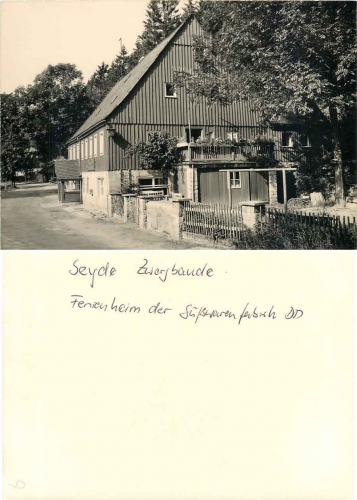 Seyde Zwergbaude.
Ferienheim der Süßwarenfabrik DD